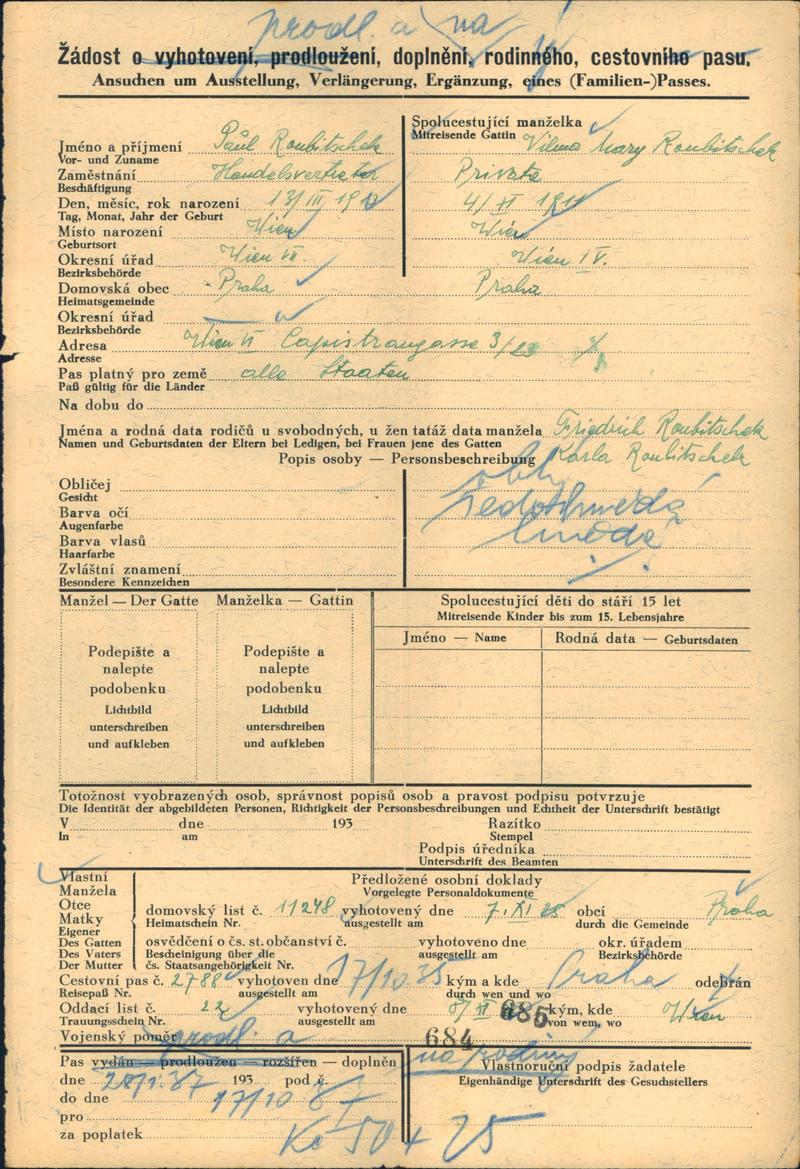 prodl. a na
Žádost o vyhotovení, prodloužení, doplnění, rodinného, cestovního pasu.
Ansuchen um Ausstellung, Verlängerung, Ergänzung, eines (Familien-)Passes.
Spolucestující manželka
Mitreisende Gattin Vilma Mary Roubitschek
Jméno a příjmení Paul Roubitschek
Vor- und Zuname
Zaměstnání Handelsvertreter Private
Beschäftigung
Den, měsíc, rok narození 13/III 1913 4/XI 1911
Tag, Monat, Jahr der Geburt
Místo narození Wien Wien
Geburtsort
Okresní úřad Wien VII. Wien IV.
Bezirksbehörde
Domovská obec Praha Praha
Heimatsgemeinde
Okresní úřad
Bezirksbehörde
Adresa Wien VI Capistrangasse 3/23
Adresse
Pas platný pro země alle Staaten
Paß gültig für die Länder
Na dobu do
Jména a rodná data rodičů u svobodných, u žen tatáž data manžela Friedrich Roubitschek
Namen und Geburtsdaten der Eltern bei Ledigen, bei Frauen jene des Gatten
Popis osoby — Personsbeschreibung Karla Roubitschek
Obličej obl.
Gesicht
Barva očí šedohnědá
Augenfarbe
Barva vlasů hnědé
Haarfarbe
Zvláštní znamení
Besondere Kennzeichen
Manžel — Der Gatte Manželka — Gattin Spolucestující děti do stáří 15 let
Mitreisende Kinder bis zum 15. Lebensjahre
Jméno — Name Rodná data — Geburtsdaten
Podepište a Podepište a
nalepte nalepte
podobenku podobenku
Lichtbild Lichtbild
unterschreiben unterschreiben
und aufkleben und aufkleben
Totožnost vyobrazených osob, správnost popisů osob a pravost podpisu potvrzuje
Die Identität der abgebildeten Personen, Richtigkeit der Personsbeschreibungen und Echtheit der Unterschrift bestätigt
V dne 193 Razítko
In am Stempel
Podpis úředníka
Unterschrift des Beamten
Vlastní Předložené osobní doklady
Manžela Vorgelegte Personaldokumente
Otce
Matky domovský list č. 11248 vyhotovený dne 7. XI 28 obcí Praha
Eigener Heimatschein Nr. ausgestellt am durch die Gemeinde
Des Gatten osvědčení o čs. st. občanství č. vyhotoveno dne okr. úřadem
Des Vaters Bescheinigung über die ausgestellt am Bezirksbehörde
Der Mutter čs. Staatsangehörigkeit Nr.
Cestovní pas č. 2788 vyhotoven dne 17/10 35 kým a kde Praha odebrán
Reisepaß Nr. ausgestellt am durch wen und wo
Oddací list č. 22 vyhotovený dne kým, kde Wien
Trauungsschein Nr. ausgestellt am 685 von wem, wo
Vojenský poměr prodl. a 684
na rodinný
Pas vydán — prodloužen — rozšířen — doplněn Vlastnoruční podpis žadatele
dne 28/1. 37 193 pod č. Eigenhändige Unterschrift des Gesuchstellers
do dne 17/10 37
pro
za poplatek Kč 50 + 25